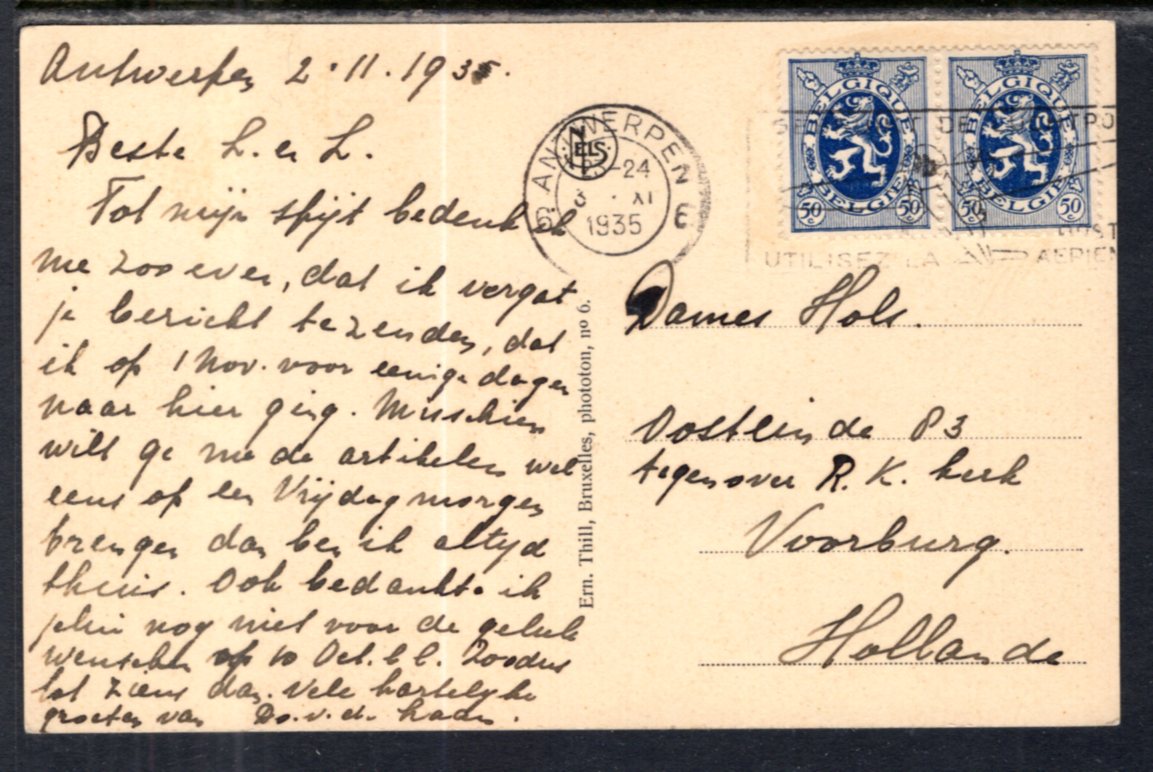 Antwerpen 2.11.1935.
Beste L. en L.
Tot mijn spijt bedenk ik
me zoo even, dat ik vergat
je bericht te zenden, dat
ik op 1 Nov. voor eenige dagen
naar hier ging. Misschien
wilt ge me de artikelen wel
eens op een Vrijdagmorgen
brengen dan ben ik altyd
thuis. Ook bedankte ik
jelui nog niet voor de geluk
wenschen op 10 Oct. l.l. Zoodus
tot ziens dan. Vele hartelyke
groeten van Do. v. d.
Ern. Thill, Bruxelles, phototon, nº 6.
NELS
ANTWERPEN
6 6
-24
3 . XI
1935
BELGIQUE
BELGIË
50c 50c
BELGIQUE
BELGIË
50c 50c
UTILISEZ LA
AERIEN
Dames Hols.
Oosteinde 83
tegenover R. K. kerk
Voorburg.
Hollande